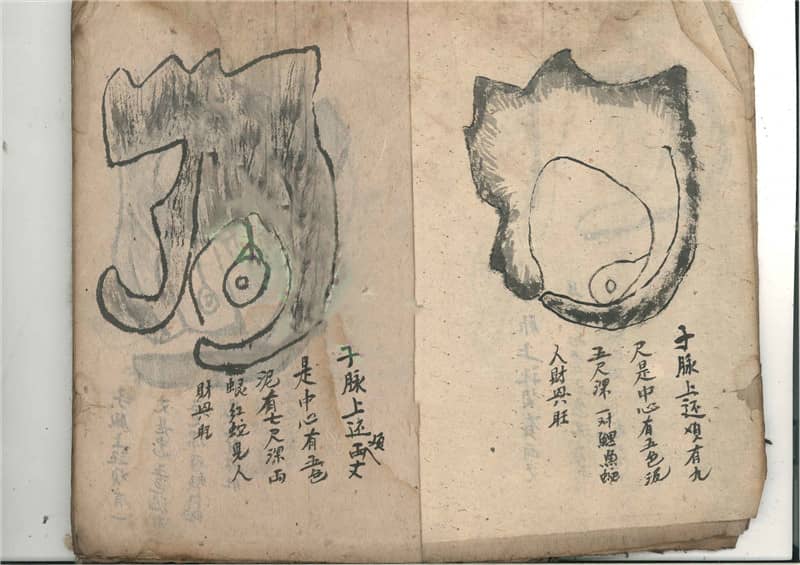 子脉上还須有九
尺是中心有五色泥
五尺深 一对鯉魚
人財兴旺
子脉上还須两丈
是中心有五色
泥有七尺深两
红蛇見人
財兴旺